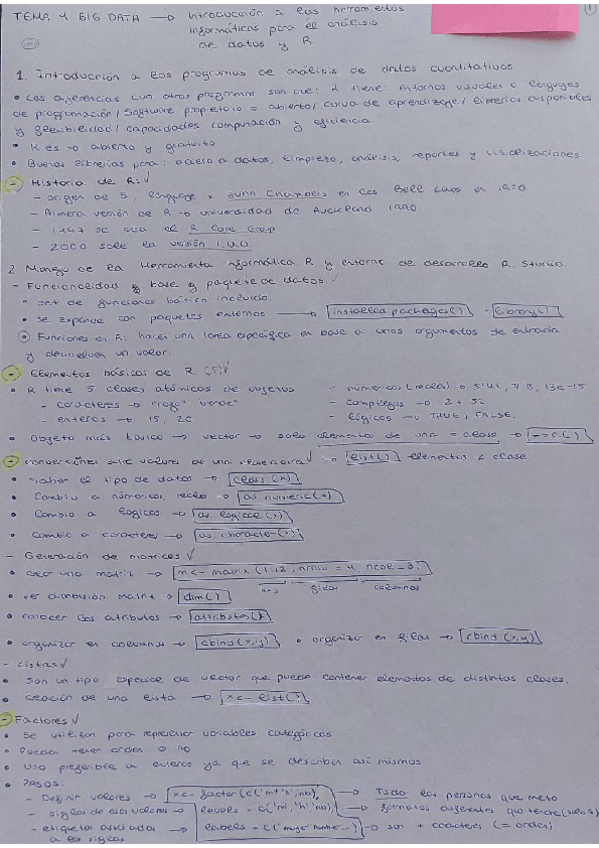 TEMA 4 BIG DATA → Introducción a las herramientas
informáticas para el análisis
de datos y R
1. Introducción a los programas de análisis de datos cuantitativos
• Las diferencias con otros programas son que: R tiene: entornos visuales o lenguajes
de programación / Software propietario o abierto / curva de aprendizaje / librerías disponibles
y flexibilidad / capacidades computación y eficiencia.
• R es → abierto y gratuito
• Buenas librerías para: acceso a datos, limpieza, análisis, reportes y visualizaciones
- Historia de R: √
- origen de S, lenguaje x John Chambers en los Bell Labs en
- Primera versión de R → universidad de Auckland 1990
- 1997 se crea el R Core Group
- 2000 sale la versión 1.0.0.
2. Manejo de la Herramienta informática R y entorno de desarrollo R. Studio
- Funcionalidad y base y paquete de datos. √
• set de funciones básico incluido.
• Se expande con paquetes externos → installed.packages() - library()
• Funciones en R: hacen una tarea específica en base a unos argumentos de entrada
y devuelven un valor.
- Elementos básicos de R. (5) √
• R tiene 5 clases atómicas de objetos
- caracteres → "rojo" "verde"
- enteros → 15, 20
- numéricos (reales) →
- complejos → 2 + 5i
- lógicos → TRUE, FALSE.
• Objeto más básico → vector → solo elementos de una = clase → c()
list() elementos ≠ clase
- Conversiones entre valores de una √
• Saber el tipo de datos → class(x)
• Cambio a númericos, reales → as.numeric(x)
• Cambio a lógicos → as.logical(x)
• Cambio a caracteres → as.character(x)
- Generación de matrices √
• crear una matriz → m <- matrix (1:12, nrow = 4, ncol = 3)
filas columnas
• ver dimensión matriz → dim()
• conocer los atributos → attributes()
• organizar en columnas → cbind(x,y) • organizar en filas → rbind(x,y)
- Listas √
• Son un tipo especial de vector que puede contener elementos de distintas clases.
• creación de una lista → x <- list()
- Factores √
• Se utilizan para representar variables categóricas
• Pueden tener orden o no
• Uso preferible a enteros ya que se describen así mismos
• PASOS:
- Definir valores → x <- factor(c('m','h','nb), → Todo las personas que meto
- siglas de esos valores → levels = c('m','h','nb), → formatos diferentes que tendré
- etiquetas asociadas → labels = c('mujer' → son + caracteres (= orden)
a las siglas